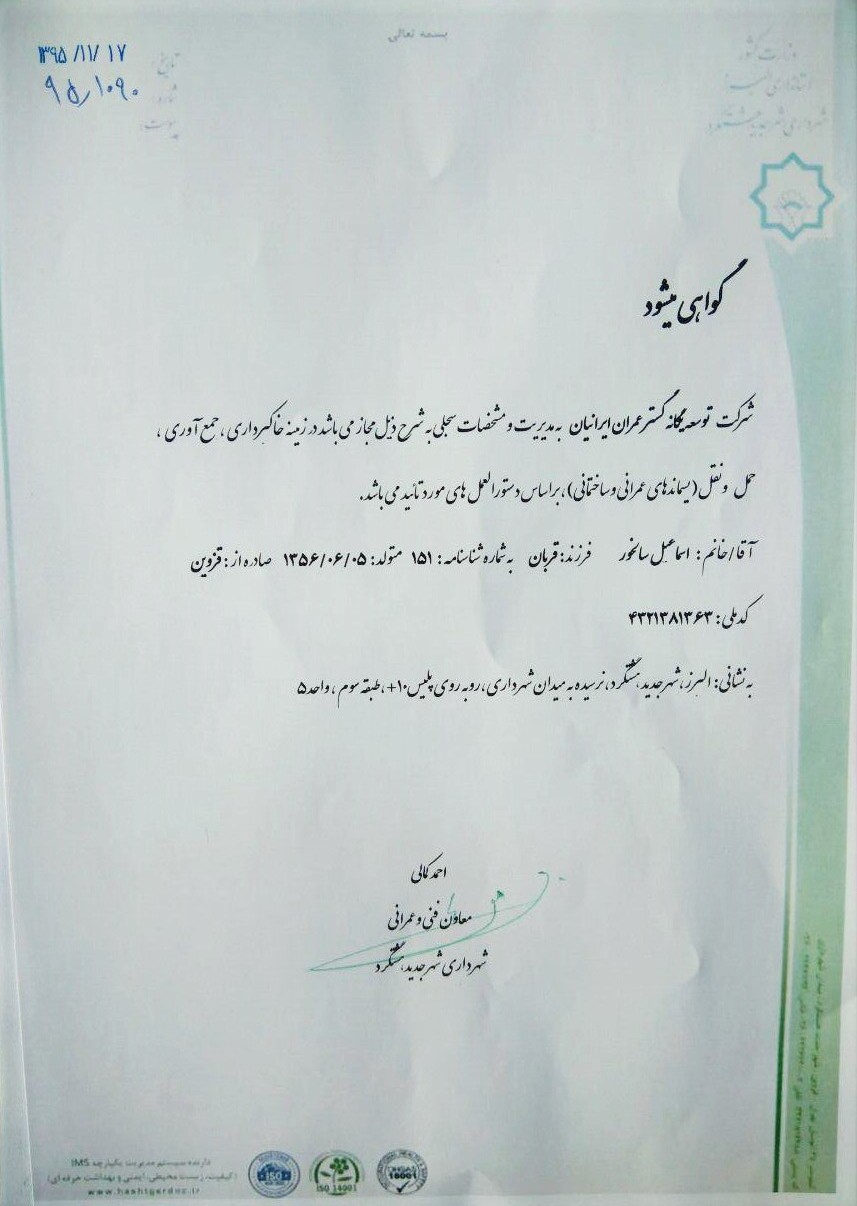 بسمه تعالی
وزارت کشور
استانداری البرز
شهرداری شهر جدید هشتگرد
تاریخ: ۱۳۹۵/۱۱/۱۷
شماره: ۹۵/۱۰۹۰
پیوست:
گواهی میشود
شرکت توسعه یگانه گستر عمران ایرانیان به مدیریت و مشخصات سجلی به شرح ذیل مجاز می باشد در زمینه خاکبرداری، جمع آوری،
حمل و نقل (پسماندهای عمرانی و ساختمانی)، براساس دستورالعمل های مورد تائید می باشد.
آقا/خانم: اسماعیل سالخور فرزند: قربان به شماره شناسنامه: ۱۵۱ متولد: ۱۳۵۶/۰۶/۰۵ صادره از: قزوین
کد ملی: ۴۳۲۱۳۸۱۳۶۳
به نشانی: البرز، شهر جدید هشتگرد، نرسیده به میدان شهرداری، روبه روی پلیس ۱۰+، طبقه سوم، واحد ۵
احمد کمالی
معاون فنی و عمرانی
شهرداری شهر جدید هشتگرد
دارنده سیستم مدیریت یکپارچه IMS
(کیفیت، زیست محیطی، ایمنی و بهداشت حرفه ای)
www.hashtgerdnc.ir
ISO
ISO 14001
OHSAS
18001